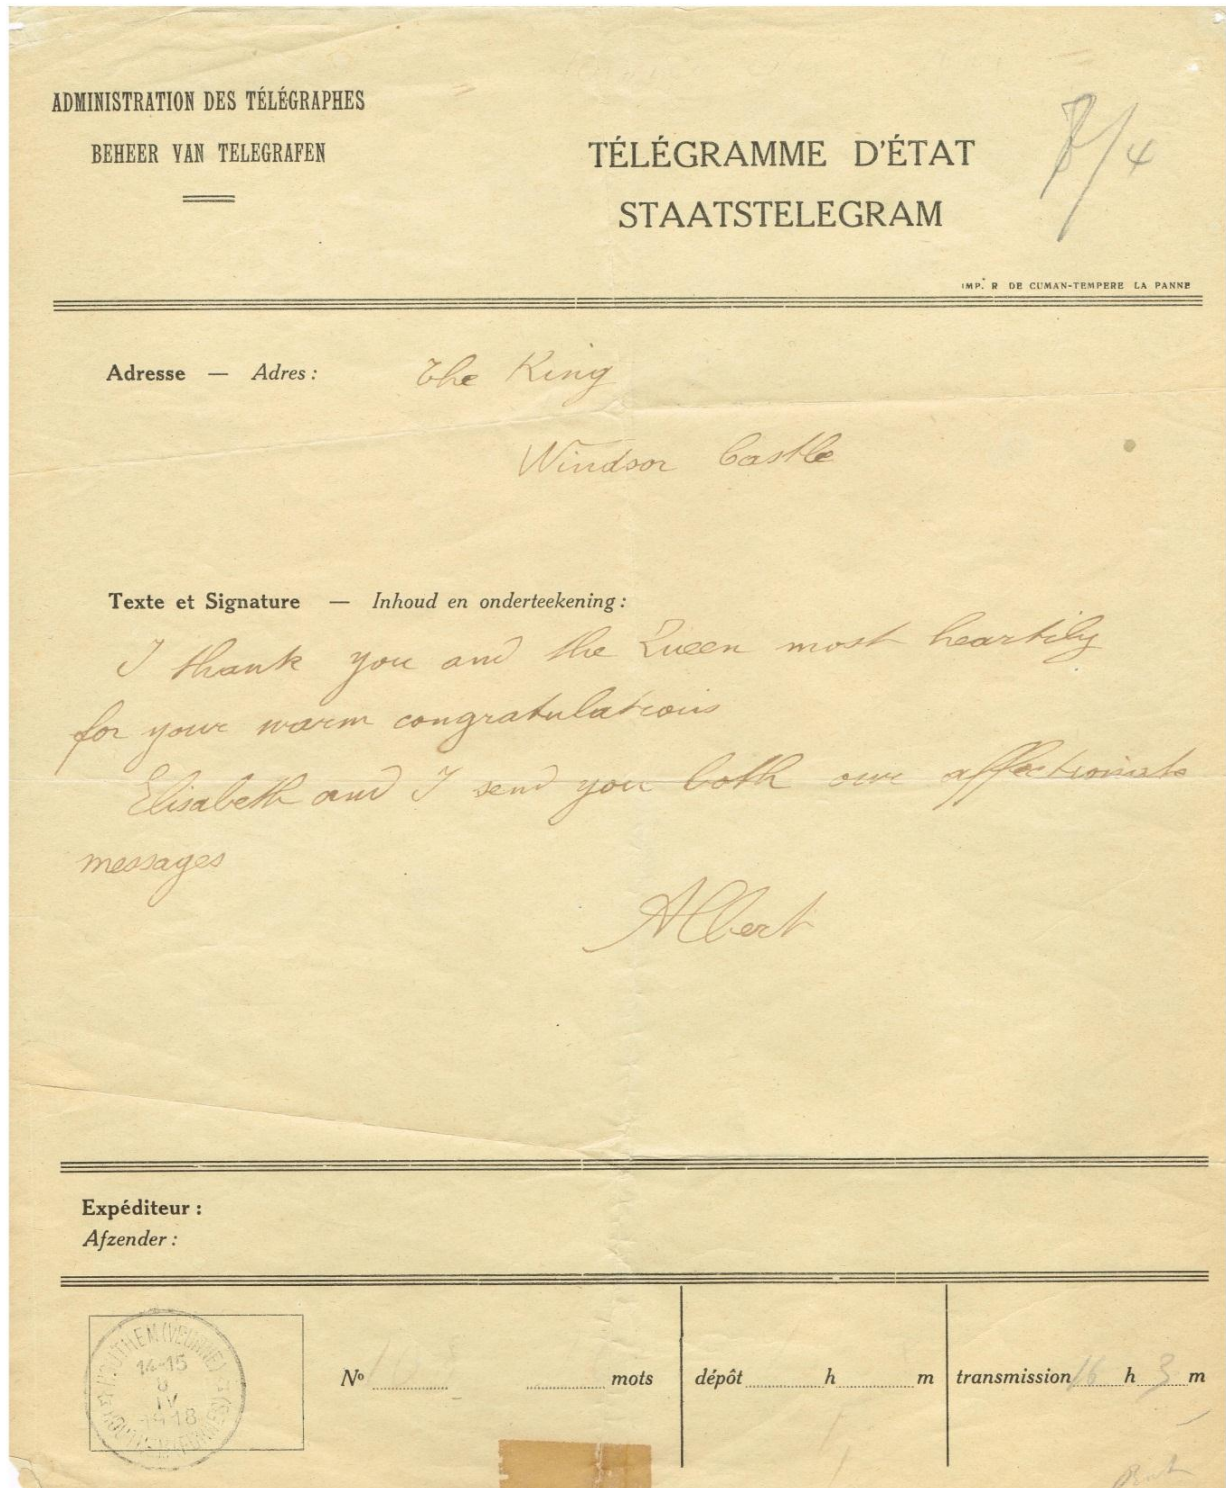 ADMINISTRATION DES TÉLÉGRAPHES
BEHEER VAN TELEGRAFEN
TÉLÉGRAMME D'ÉTAT
STAATSTELEGRAM
8/4
IMP. R DE CUMAN-TEMPERE LA PANNE
Adresse — Adres : The King
Windsor Castle
Texte et Signature — Inhoud en onderteekening :
I thank you and the Queen most heartily
for your warm congratulations
Elisabeth and I send you both our affectionate
messages
Albert
Expéditeur :
Afzender :
HOUTHEM (VEURNE)
14-15
8
IV
1918
HOUTHEM (FURNES)
Nº mots dépôt h m transmission 16 h 3 m